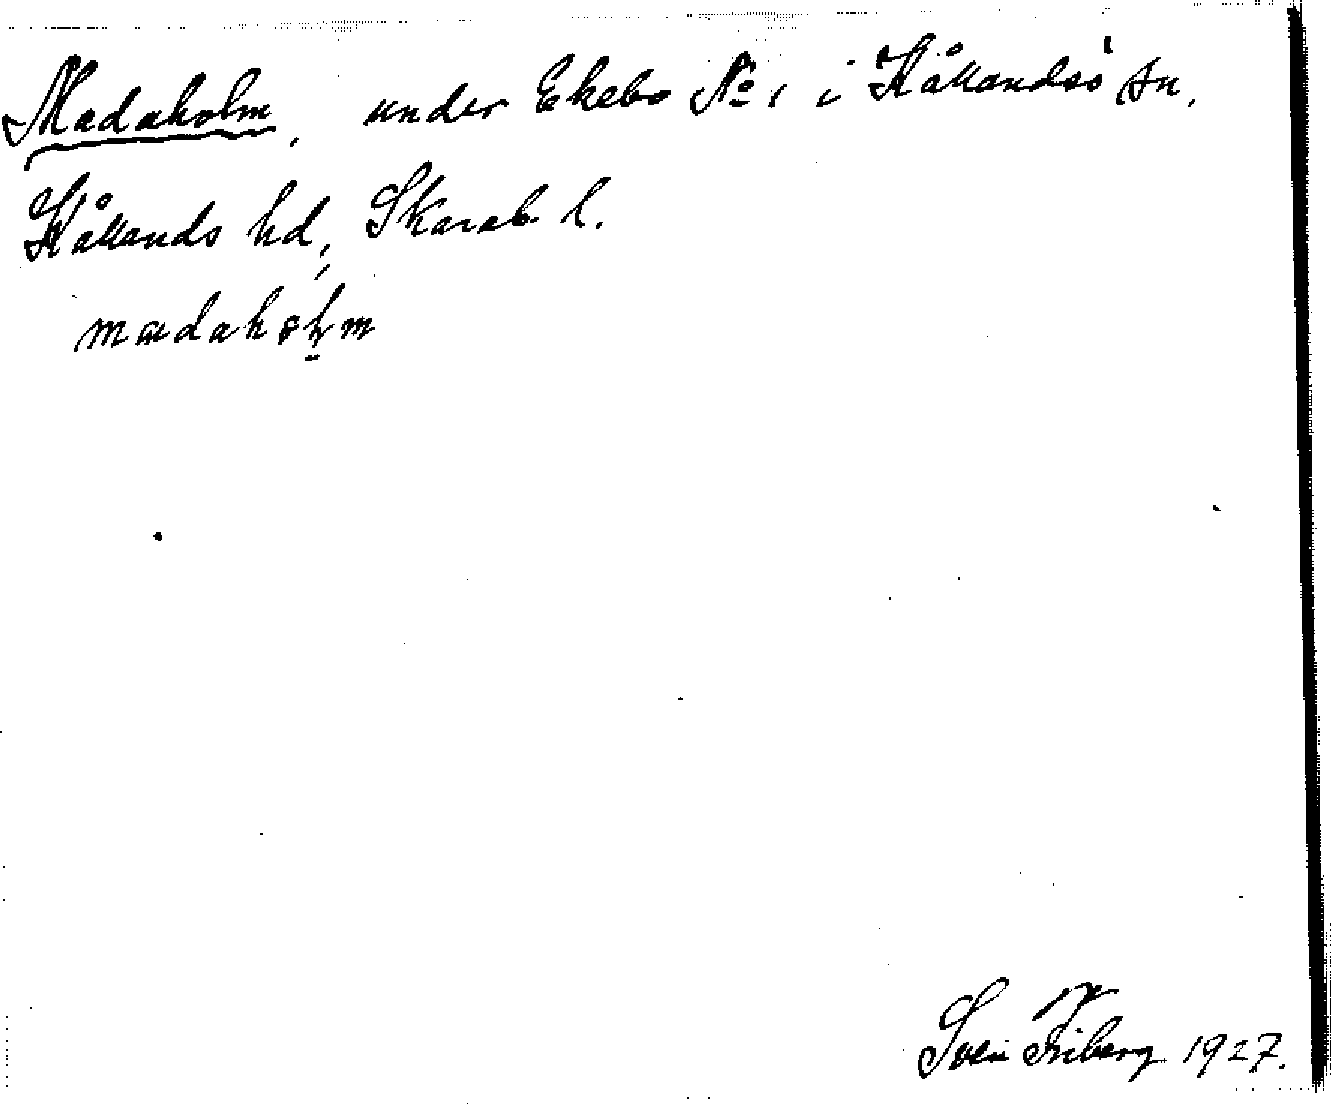 Madaholm, under Ekebo No 1 i Kållandsö sn,
Kållands hd, Skarab. l.
madahoļm
Sven Friberg 1927.